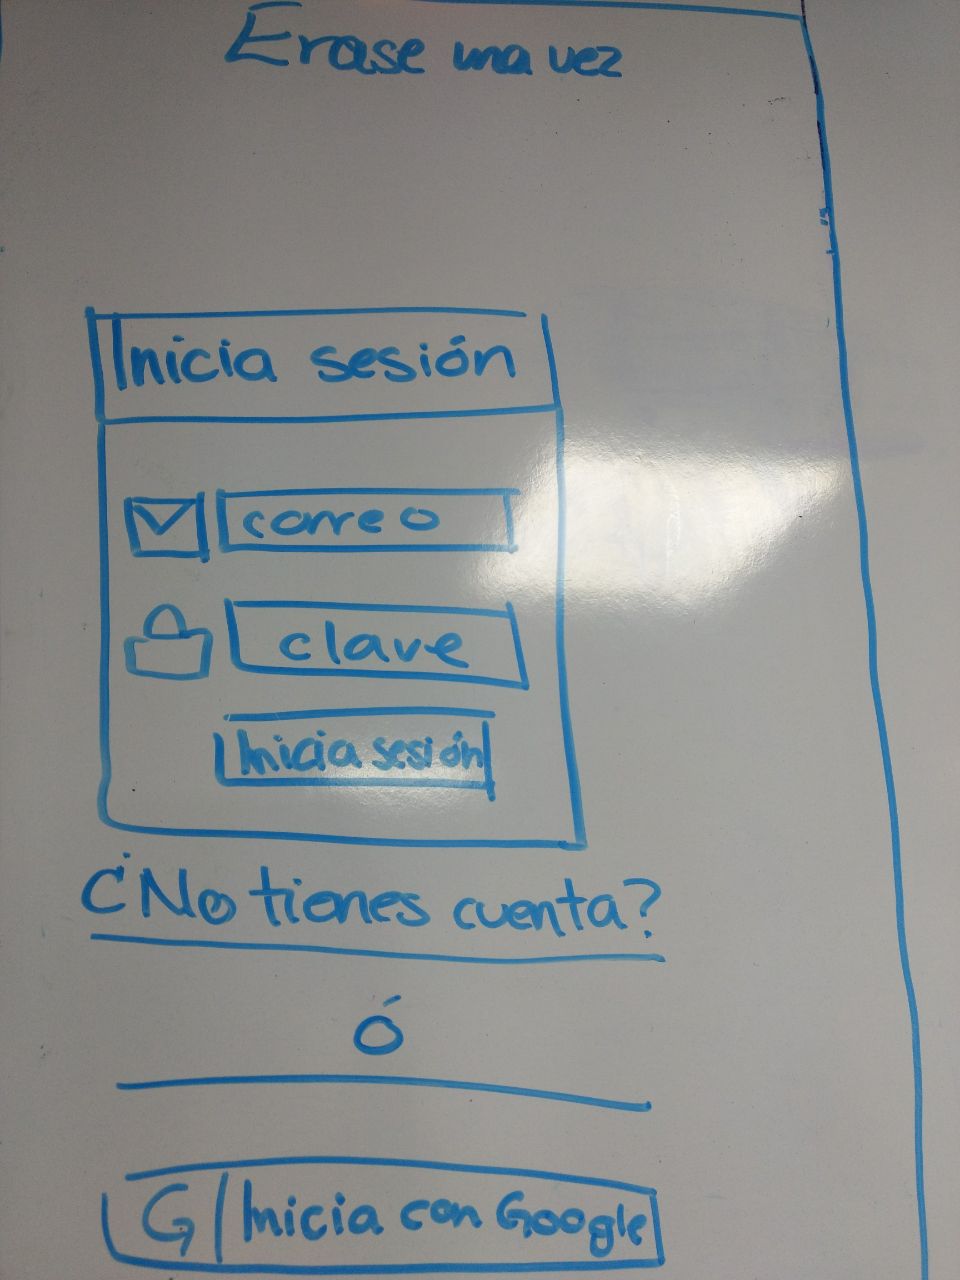 Erase una vez
Inicia sesión
correo
clave
Inicia sesión
¿No tienes cuenta?
Ó
G Inicia con Google